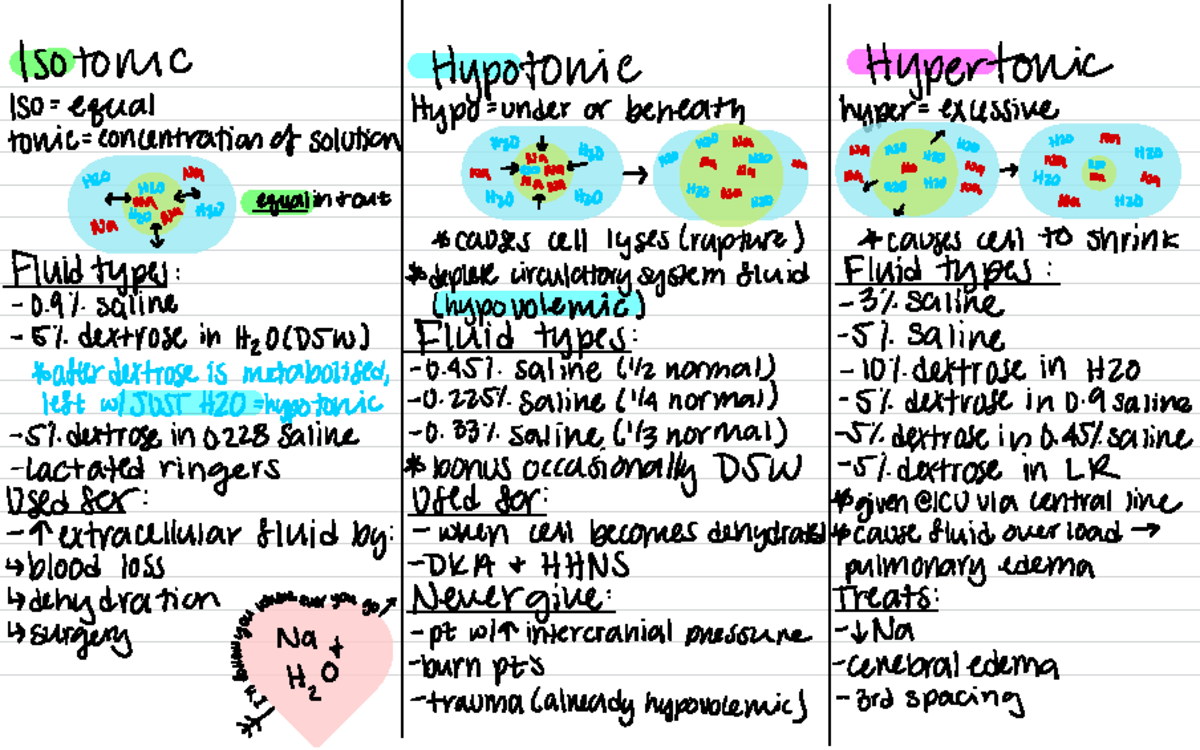 Isotonic
Iso = equal
tonic = concentration of solution
H2O
H2O
Na
Na
H2O
Na
Na
H2O
equal in + out
Fluid types:
- 0.9% saline
- 5% dextrose in H2O (D5W)
*after dextrose is metabolised,
left w/ JUST H2O = hypotonic
- 5% dextrose in 0.225 saline
- lactated ringers
Used for:
- ↑ extracellular fluid by:
↳ blood loss
↳ dehydration
↳ surgery
I'll follow you where ever you go
Na +
H2O
Hypotonic
Hypo = under or beneath
H2O
Na
H2O
Na
H2O
Na
Na
Na
Na
H2O
H2O
H2O
Na
H2O
Na
Na
H2O
Na
H2O
Na
H2O
* causes cell lyses (rupture)
* deplete circulatory system fluid
(hypovolemic)
Fluid types:
- 0.45% saline (1/2 normal)
- 0.225% saline (1/4 normal)
- 0.33% saline (1/3 normal)
* bonus occasionally D5W
Used for:
- when cell becomes dehydrated
- DKA + HHNS
Never give:
- pt w/↑ intercranial pressure
- burn pt's
- trauma (already hypovolemic)
Hypertonic
hyper = excessive
Na
H2O
H2O
Na
H2O
Na
Na
Na
H2O
H2O
Na
H2O
Na
H2O
Na
H2O
Na
Na
H2O
Na
H2O
* causes cell to shrink
Fluid types:
- 3% saline
- 5% saline
- 10% dextrose in H2O
- 5% dextrose in 0.9 saline
- 5% dextrose in 0.45% saline
- 5% dextrose in LR
* given @ICU via central line
* cause fluid over load →
pulmonary edema
Treats:
- ↓Na
- cerebral edema
- 3rd spacing